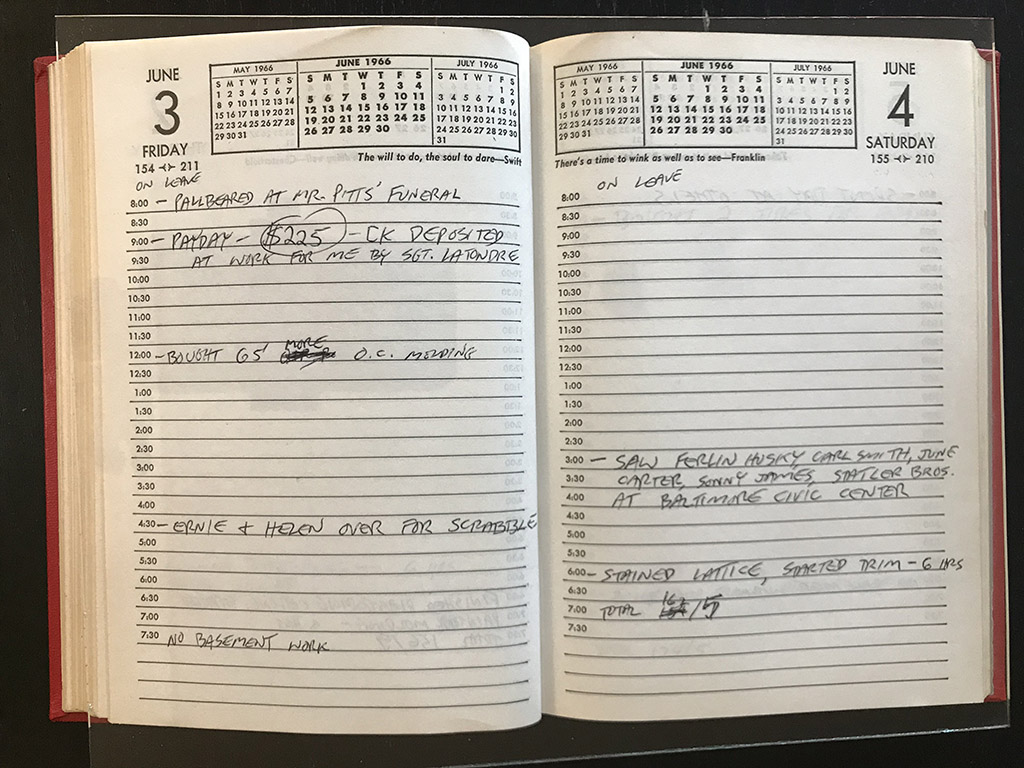 JUNE
3
FRIDAY
154 211
MAY 1966
S M T W T F S
1 2 3 4 5 6 7
8 9 10 11 12 13 14
15 16 17 18 19 20 21
22 23 24 25 26 27 28
29 30 31
JUNE 1966
S M T W T F S
1 2 3 4
5 6 7 8 9 10 11
12 13 14 15 16 17 18
19 20 21 22 23 24 25
26 27 28 29 30
JULY 1966
S M T W T F S
1 2
3 4 5 6 7 8 9
10 11 12 13 14 15 16
17 18 19 20 21 22 23
24 25 26 27 28 29 30
31
The will to do, the soul to dare—Swift
ON LEAVE
8:00 – PALLBEARED AT MR. PITTS' FUNERAL
8:30
9:00 – PAYDAY – $225 – CK DEPOSITED
9:30 AT WORK FOR ME BY SGT. LATONDRE
10:00
10:30
11:00
11:30
12:00 – BOUGHT 65' MORE O.C. MOLDING
12:30
1:00
1:30
2:00
2:30
3:00
3:30
4:00
4:30 – ERNIE + HELEN OVER FOR SCRABBLE
5:00
5:30
6:00
6:30
7:00
7:30 NO BASEMENT WORK
MAY 1966
S M T W T F S
1 2 3 4 5 6 7
8 9 10 11 12 13 14
15 16 17 18 19 20 21
22 23 24 25 26 27 28
29 30 31
JUNE 1966
S M T W T F S
1 2 3 4
5 6 7 8 9 10 11
12 13 14 15 16 17 18
19 20 21 22 23 24 25
26 27 28 29 30
JULY 1966
S M T W T F S
1 2
3 4 5 6 7 8 9
10 11 12 13 14 15 16
17 18 19 20 21 22 23
24 25 26 27 28 29 30
31
JUNE
4
SATURDAY
155 210
There's a time to wink as well as to see—Franklin
ON LEAVE
8:00
8:30
9:00
9:30
10:00
10:30
11:00
11:30
12:00
12:30
1:00
1:30
2:00
2:30
3:00 – SAW FERLIN HUSKY, CARL SMITH, JUNE
3:30 CARTER, SONNY JAMES, STATLER BROS.
4:00 AT BALTIMORE CIVIC CENTER
4:30
5:00
5:30
6:00 – STAINED LATTICE, STARTED TRIM – 6 HRS
6:30
7:00 TOTAL 162/5
7:30